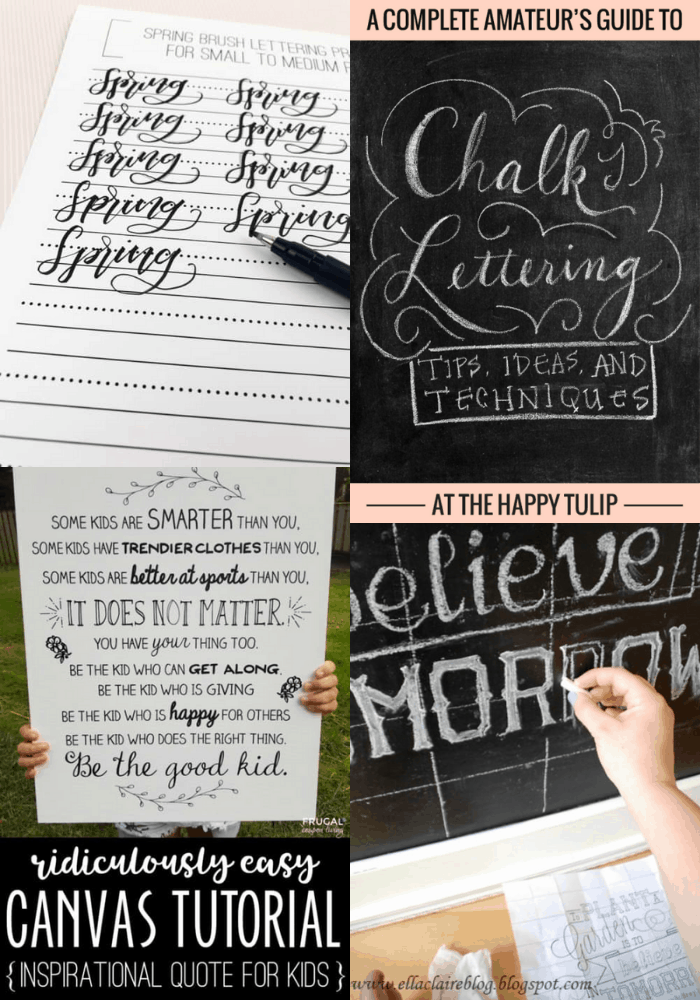 SPRING BRUSH LETTERING
FOR SMALL TO MEDIUM
Spring Spring
Spring Spring
Spring Spring
Spring Spring
Spring
A COMPLETE AMATEUR'S GUIDE TO
Chalk
Lettering
TIPS, IDEAS, AND
TECHNIQUES
AT THE HAPPY TULIP
SOME KIDS ARE SMARTER THAN YOU,
SOME KIDS HAVE TRENDIER CLOTHES THAN YOU,
SOME KIDS ARE better at sports THAN YOU,
IT DOES NOT MATTER.
YOU HAVE your THING TOO.
BE THE KID WHO CAN GET ALONG.
BE THE KID WHO IS GIVING
BE THE KID WHO IS happy FOR OTHERS
BE THE KID WHO DOES THE RIGHT THING.
Be the good kid.
FRUGAL
coupon living
ridiculously easy
CANVAS TUTORIAL
{ INSPIRATIONAL QUOTE FOR KIDS }
elieve
MORROW
PLANT
Garden
IS TO
believe
www.ellaclaireblog.blogspot.com